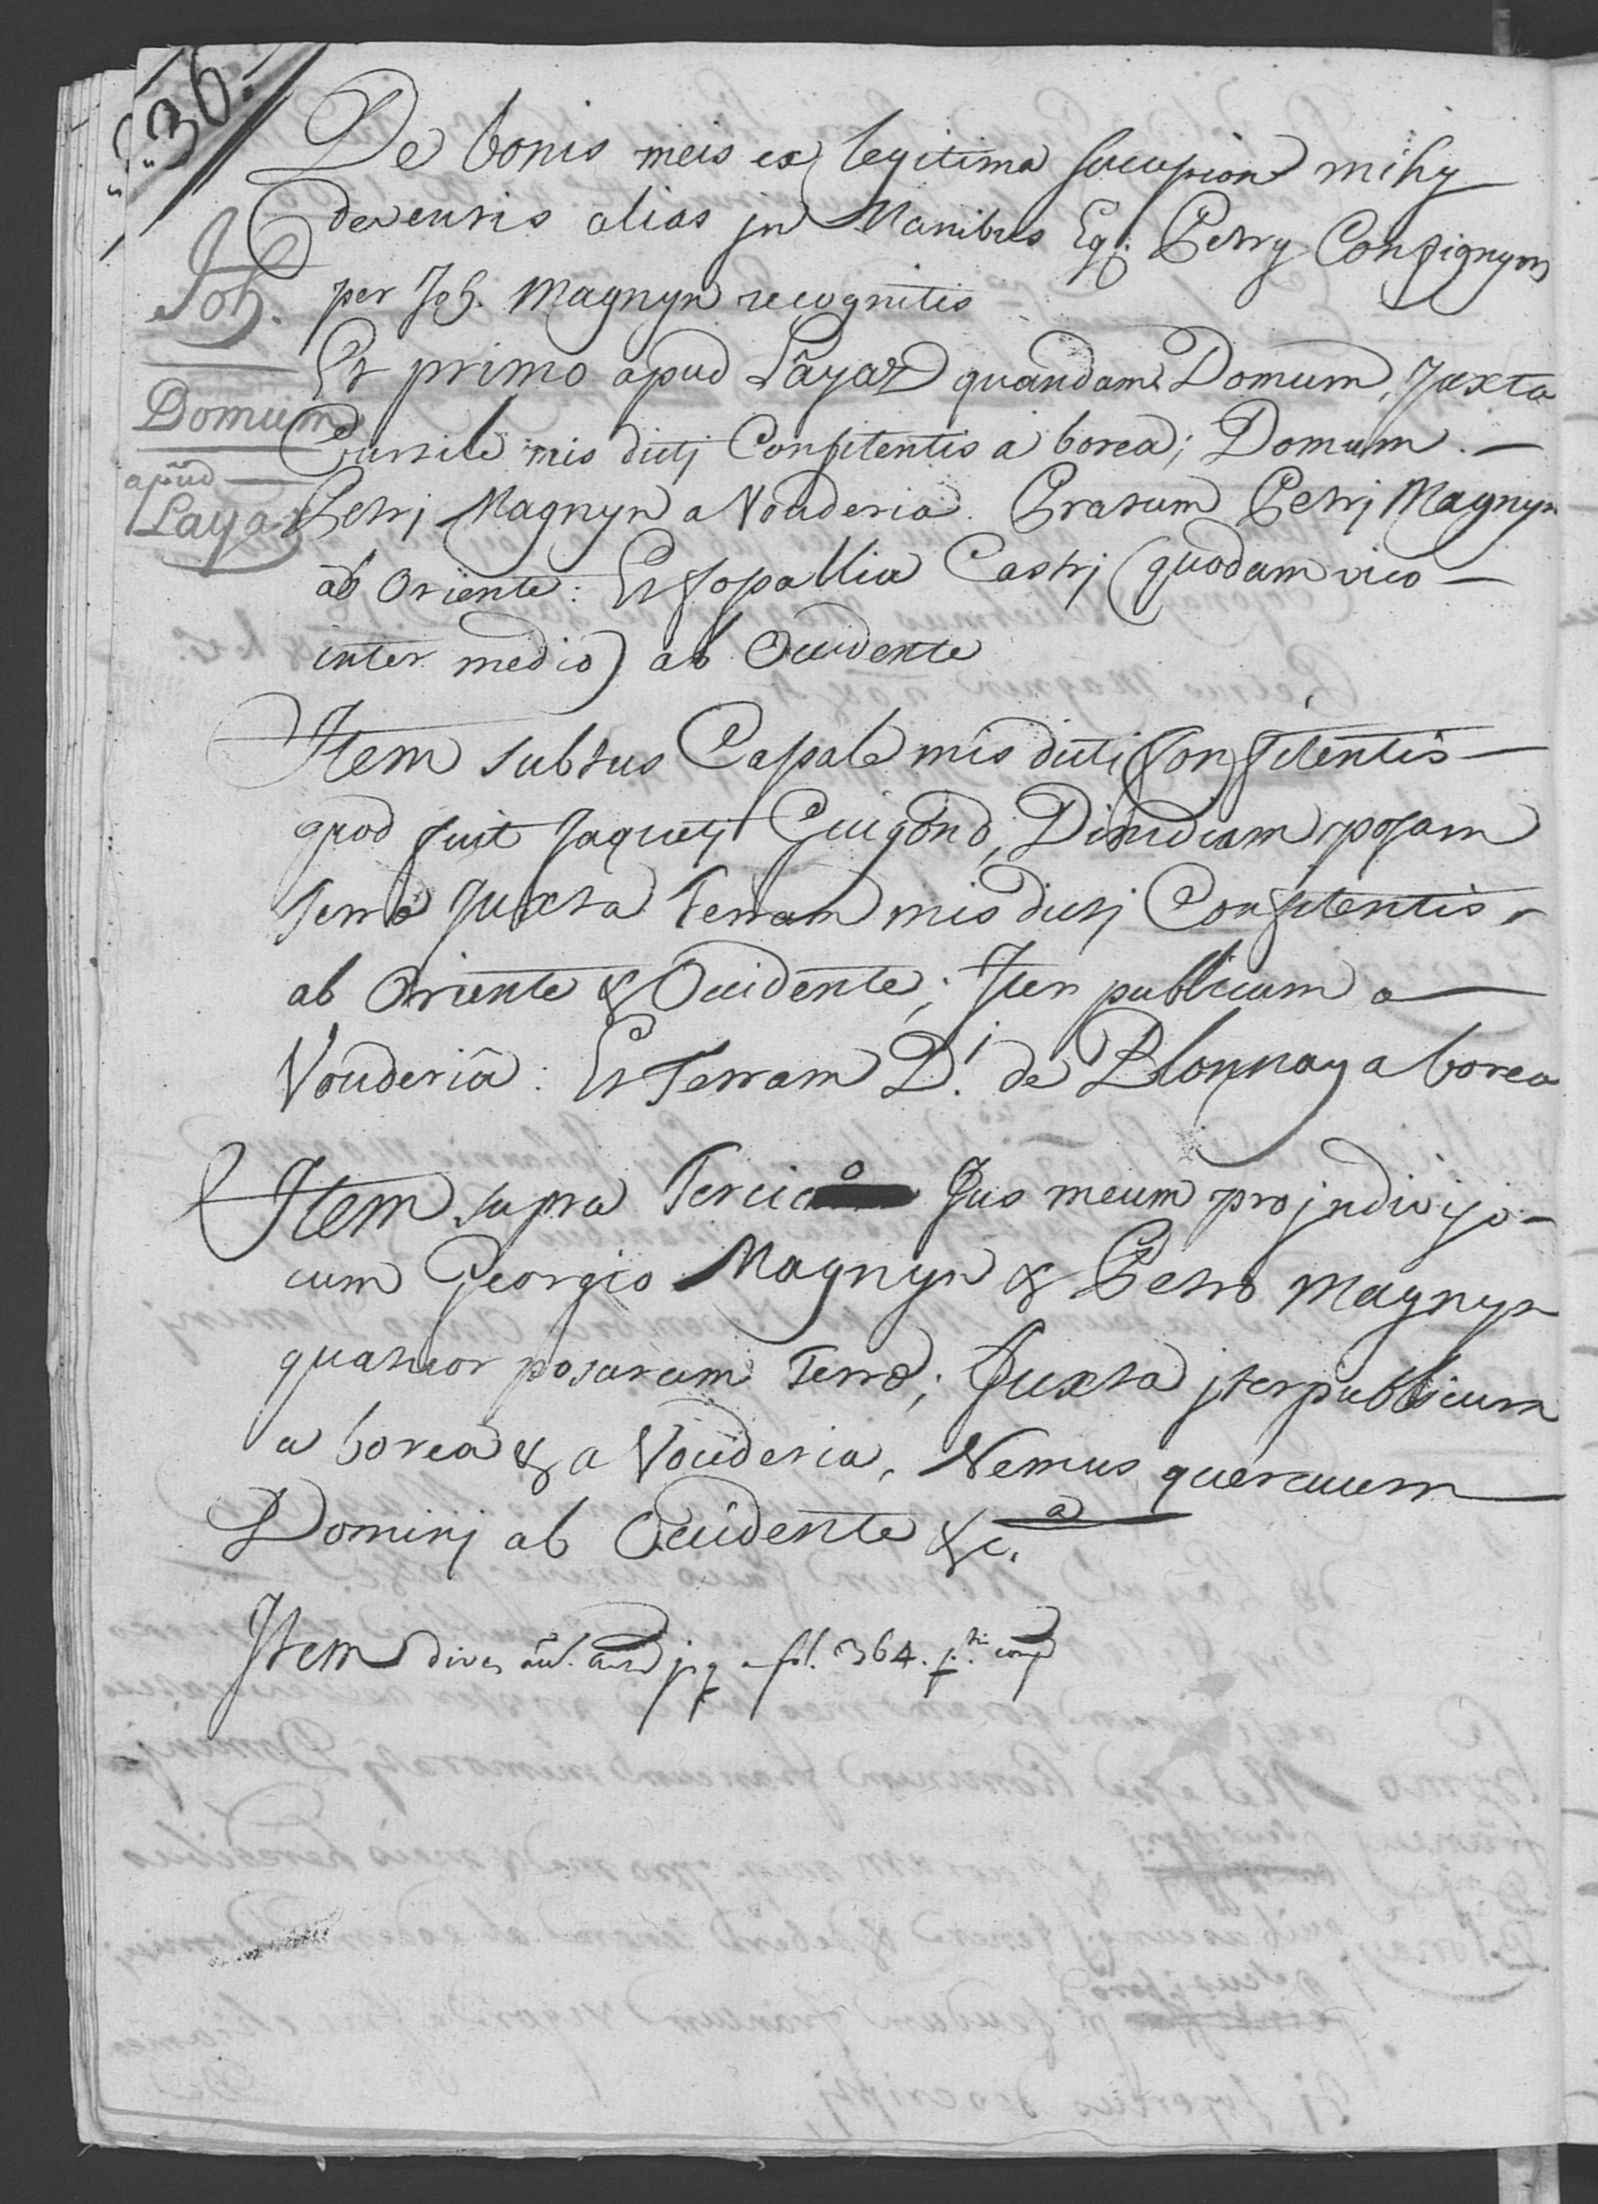 36.
De bonis meis ex legitima sucupion mihy
deventis alias jn Manibus Eg: Petry Consignyon
Joh. per Joh. Magnyn recognitis
Et primo apud Layaz quandam Domum, Juxta
Domum
Cursile mis dictj Confitentis a borea; Domum
apud
Layaz
Petrj Magnyn a Vouderia. Pratum Petrj Magnyn
ab Oriente: Et Castrj (quodam vico
inter medio) ab Occidente
Item subtus Casale mis dicti Confitentis
quod fuit Jaquetj Guigond, Dimidiam posam
Terræ Juxta Terram mis dictj Confitentis
ab Oriente & Occidente; Iter publicum a
Vouderiâ: Et Terram D.i de Blonnay a borea
Item supra Tercier Jus meum pro jndiviso
cum Georgio Magnyn & Petro Magnyn
quatuor posarum Terræ; Juxta jter publicum
a borea & a Vouderia, Nemus quercuum
Dominj ab Occidente &c.a
Item fol. 364.